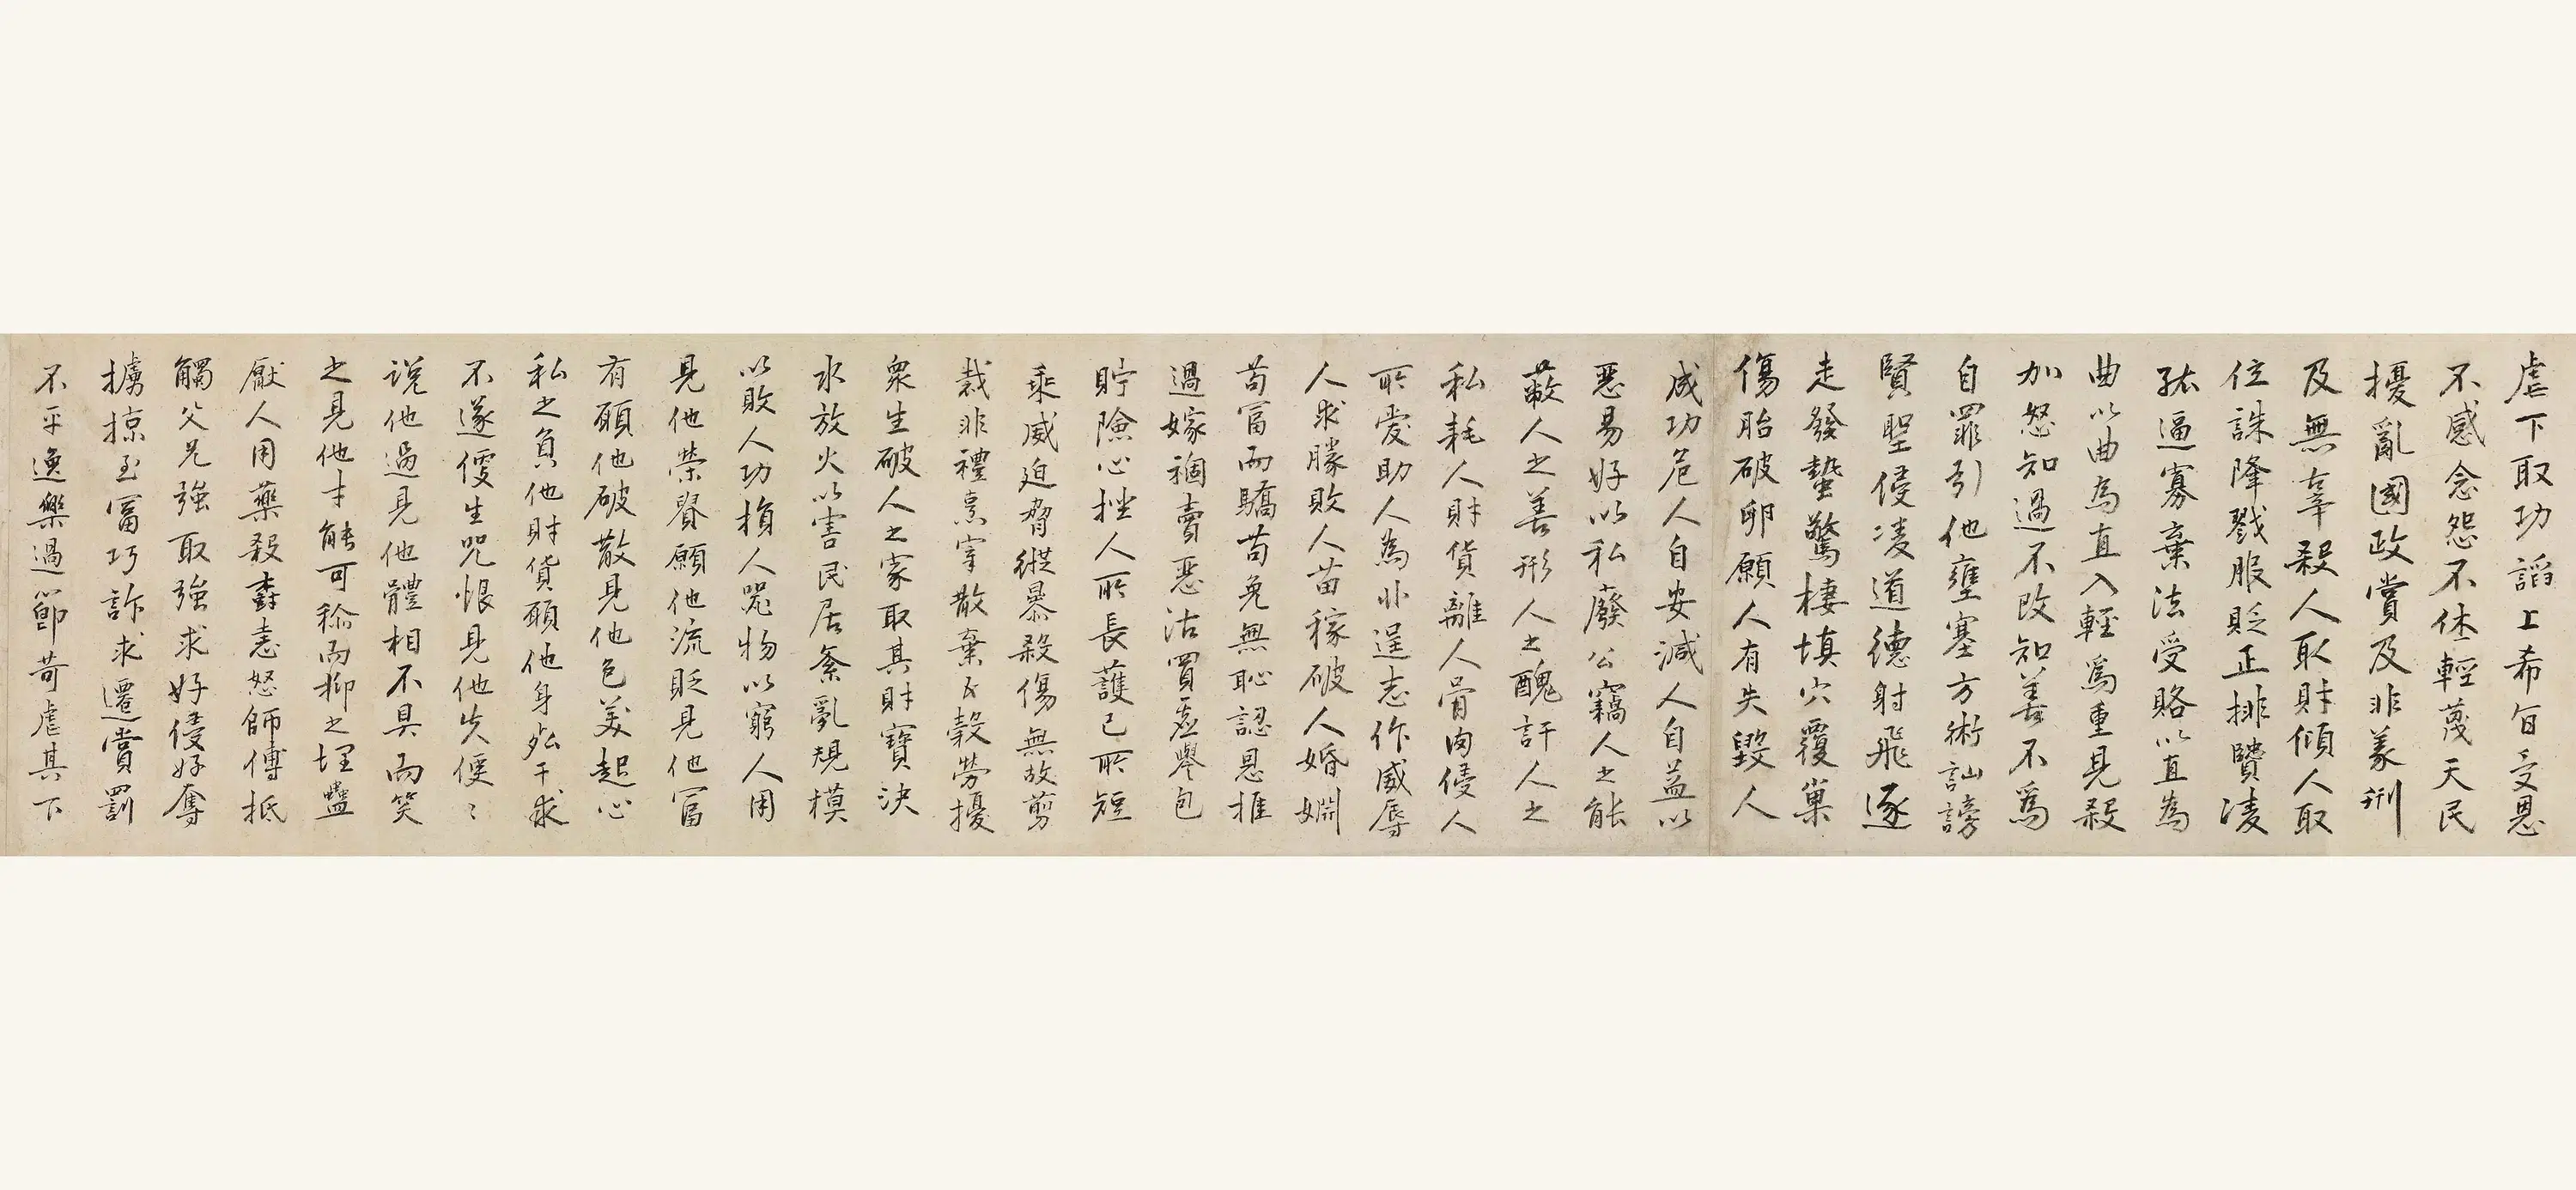 虐下取功諂上希旨受恩
不感念怨不休輕蔑天民
擾亂國政賞及非義刑
及無辜殺人取財傾人取
位誅降戮服貶正排賢凌
孤逼寡棄法受賂以直為
曲以曲為直入輕為重見殺
加怒知過不改知善不為
自罪引他壅塞方術訕謗
賢聖侵凌道德射飛逐
走發蟄驚棲填穴覆巢
傷胎破卵願人有失毀人
成功危人自安減人自益以
惡易好以私廢公竊人之能
蔽人之善形人之醜訐人之
私耗人財貨離人骨肉侵人
所愛助人為非逞志作威辱
人求勝敗人苗稼破人婚姻
苟富而驕苟免無恥認恩推
過嫁禍賣惡沽買虛譽包
貯險心挫人所長護己所短
乘威迫脅縱暴殺傷無故剪
裁非禮烹宰散棄五穀勞擾
衆生破人之家取其財寶決
水放火以害民居紊亂規模
以敗人功損人器物以窮人用
見他榮貴願他流貶見他富
有願他破散見他色美起心
私之負他財貨願他身死干求
不遂便生咒恨見他失便〻
説他過見他體相不具而笑
之見他才能可稱而抑之埋蠱
厭人用藥殺樹恚怒師傅抵
觸父兄強取強求好侵好奪
擄掠致富巧詐求遷賞罰
不平逸樂過節苛虐其下